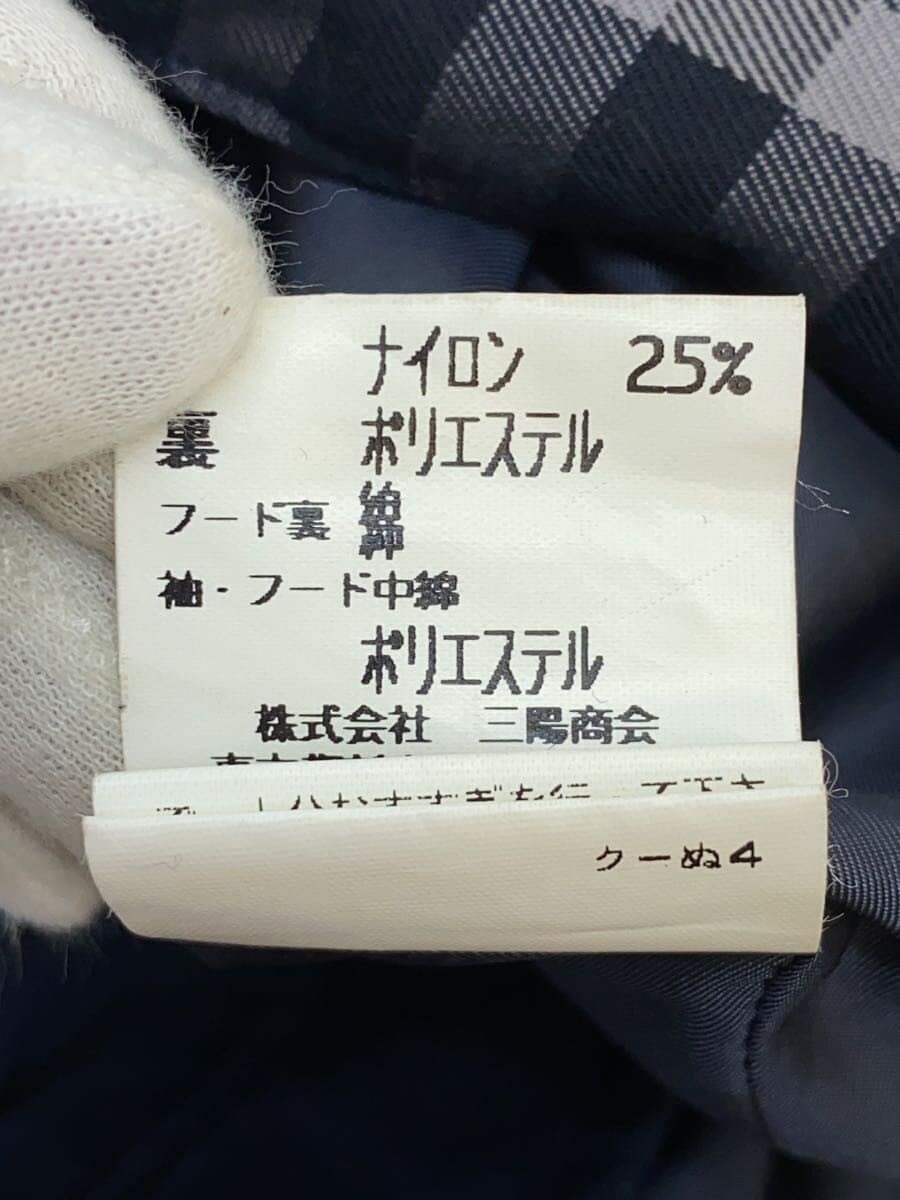 ナイロン 25%
裏 ポリエステル
フード裏 綿
袖・フード中綿
ポリエステル
株式会社 三陽商会
クーぬ4